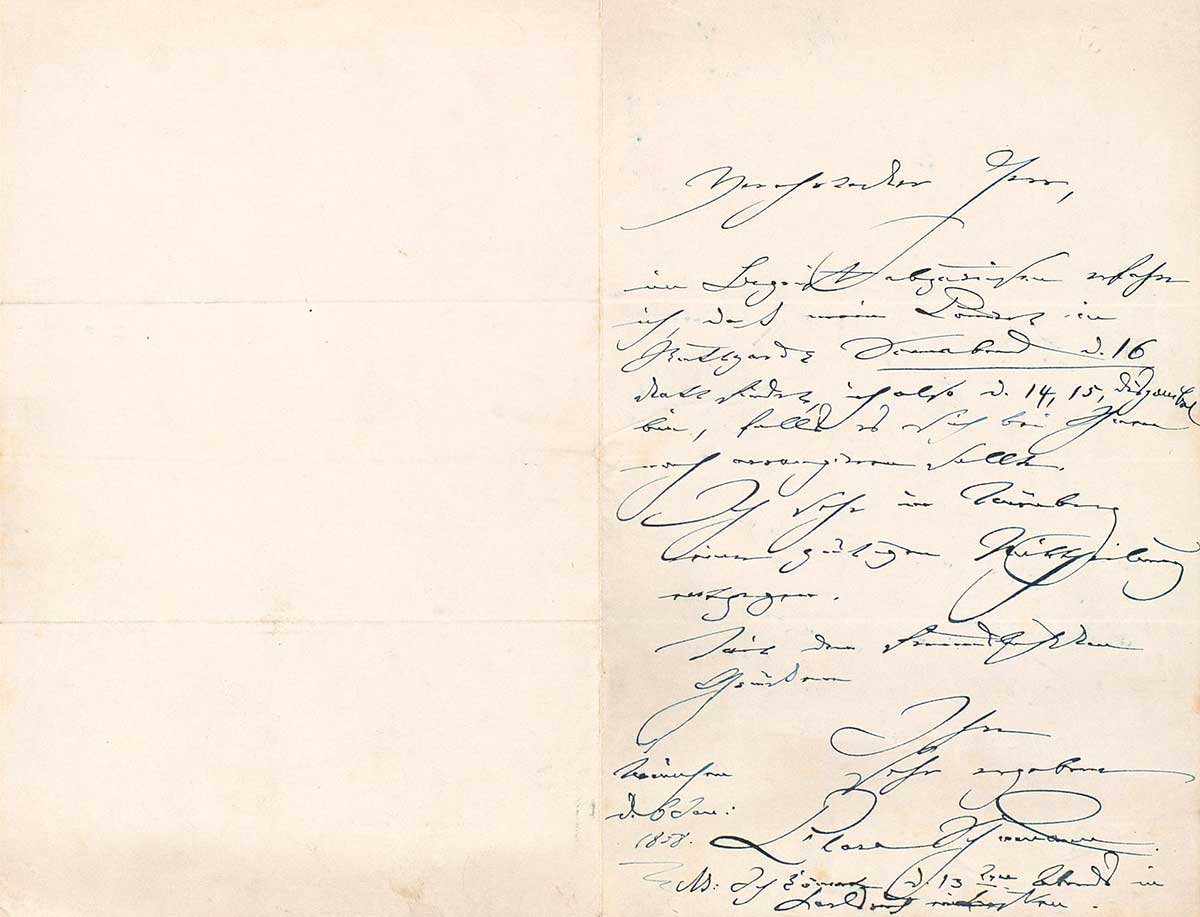 Verehrtester Herr,
im Begriff abzureisen erfahre
ich, daß mein Concert in
Stuttgardt Sonnabend d. 16
statt findet, ich also d. 14, 15,
bin, falls es sich bei Ihnen
noch arrangiren sollte.
Ich sehe in Nürnberg
einer gütigen Mittheilung
entgegen.
Mit den freundlichsten
Grüßen
Ihre
sehr ergebene
Clara Schumann.
München
d. 6 Jan:
1858.
NB: Ich könnte d. 13ten Abends in
Carlsruh eintreffen.